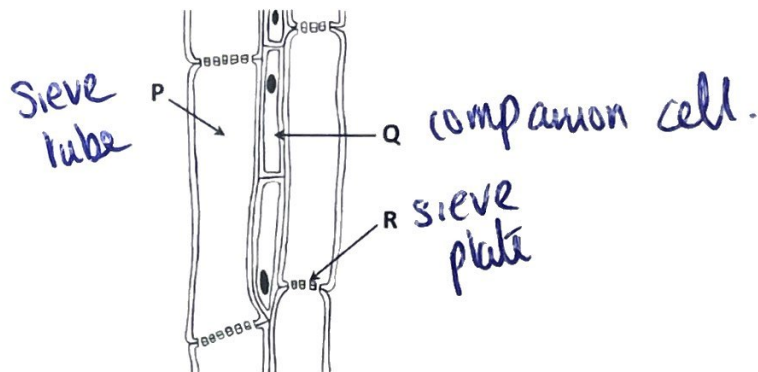 Sieve
tube
P
Q companion cell.
R sieve
plate